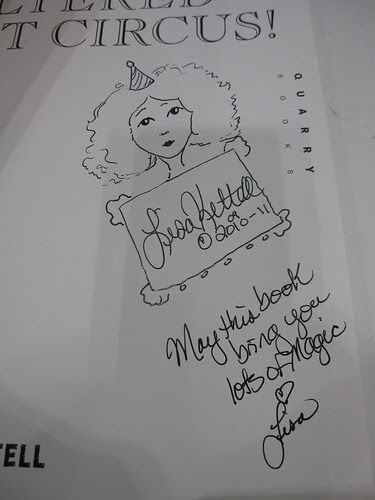 LTERED
T CIRCUS!
QUARRY
BOOKS
Lisa Kettell
© 2010-11
May this book
bring you
lots of Magic
Lisa
TELL